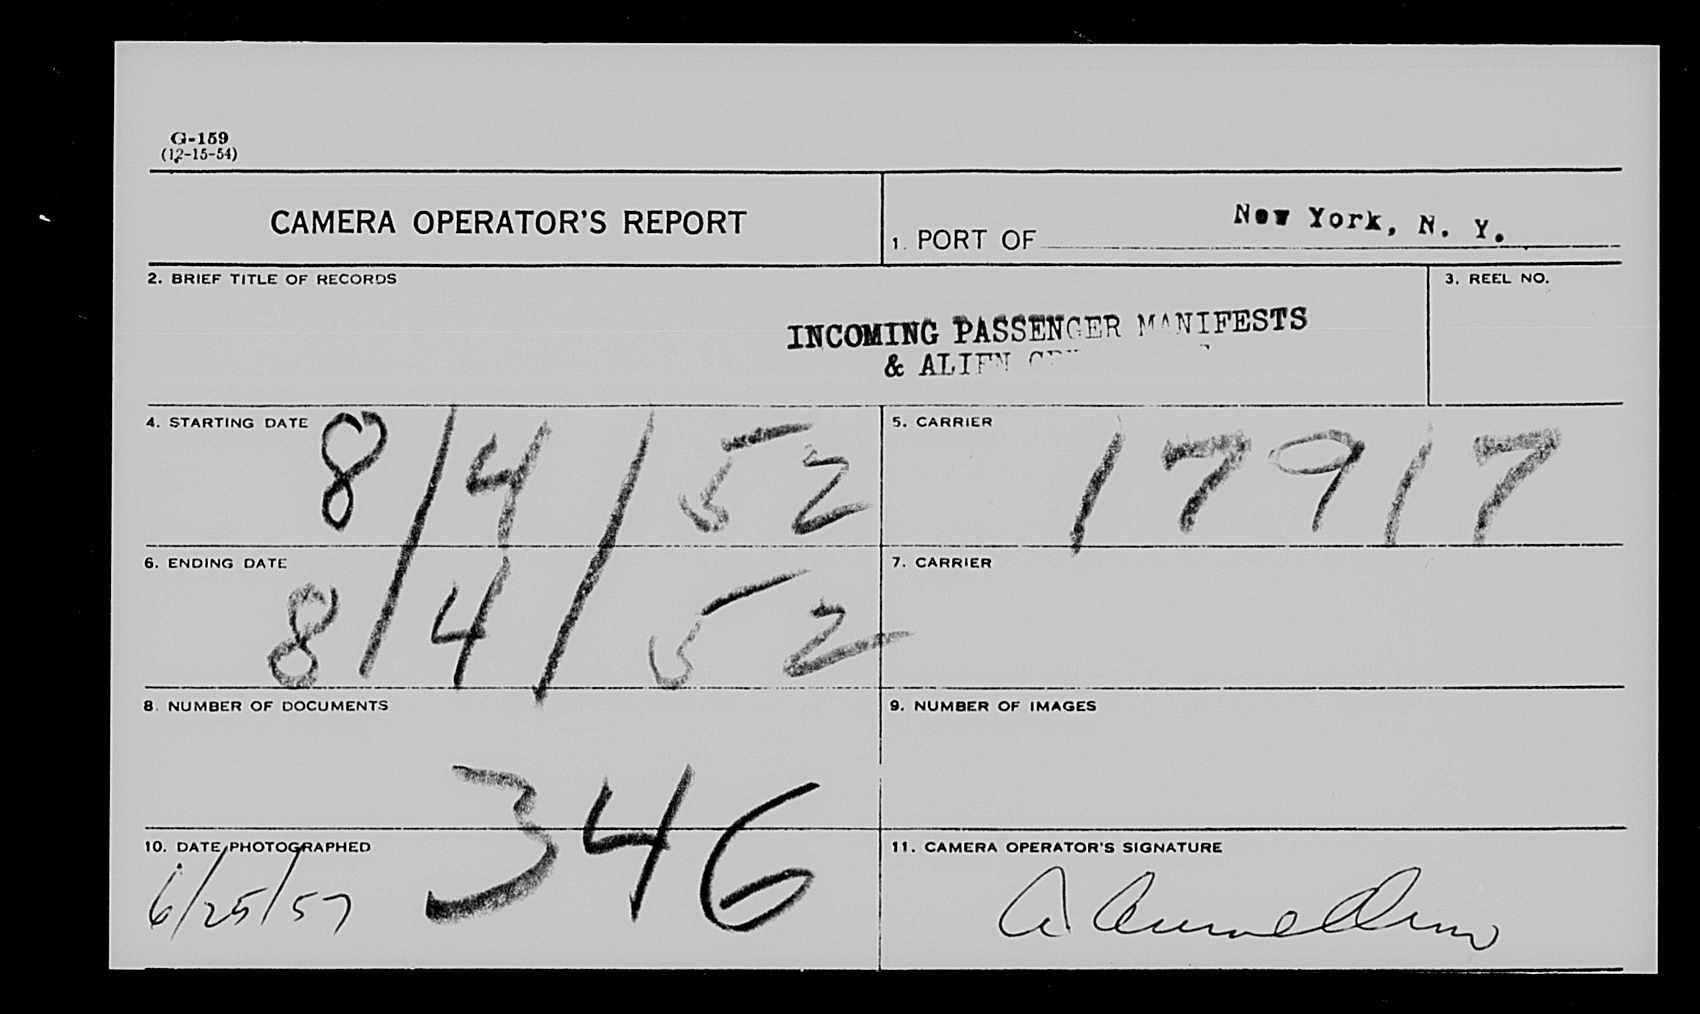 G-159
(12-15-54)
CAMERA OPERATOR'S REPORT
1. PORT OF New York, N. Y.
2. BRIEF TITLE OF RECORDS
INCOMING PASSENGER MANIFESTS
& ALIEN
3. REEL NO.
4. STARTING DATE 8/4/52
5. CARRIER 17917
6. ENDING DATE 8/4/52
7. CARRIER
8. NUMBER OF DOCUMENTS 346
9. NUMBER OF IMAGES
10. DATE PHOTOGRAPHED
6/25/57
11. CAMERA OPERATOR'S SIGNATURE